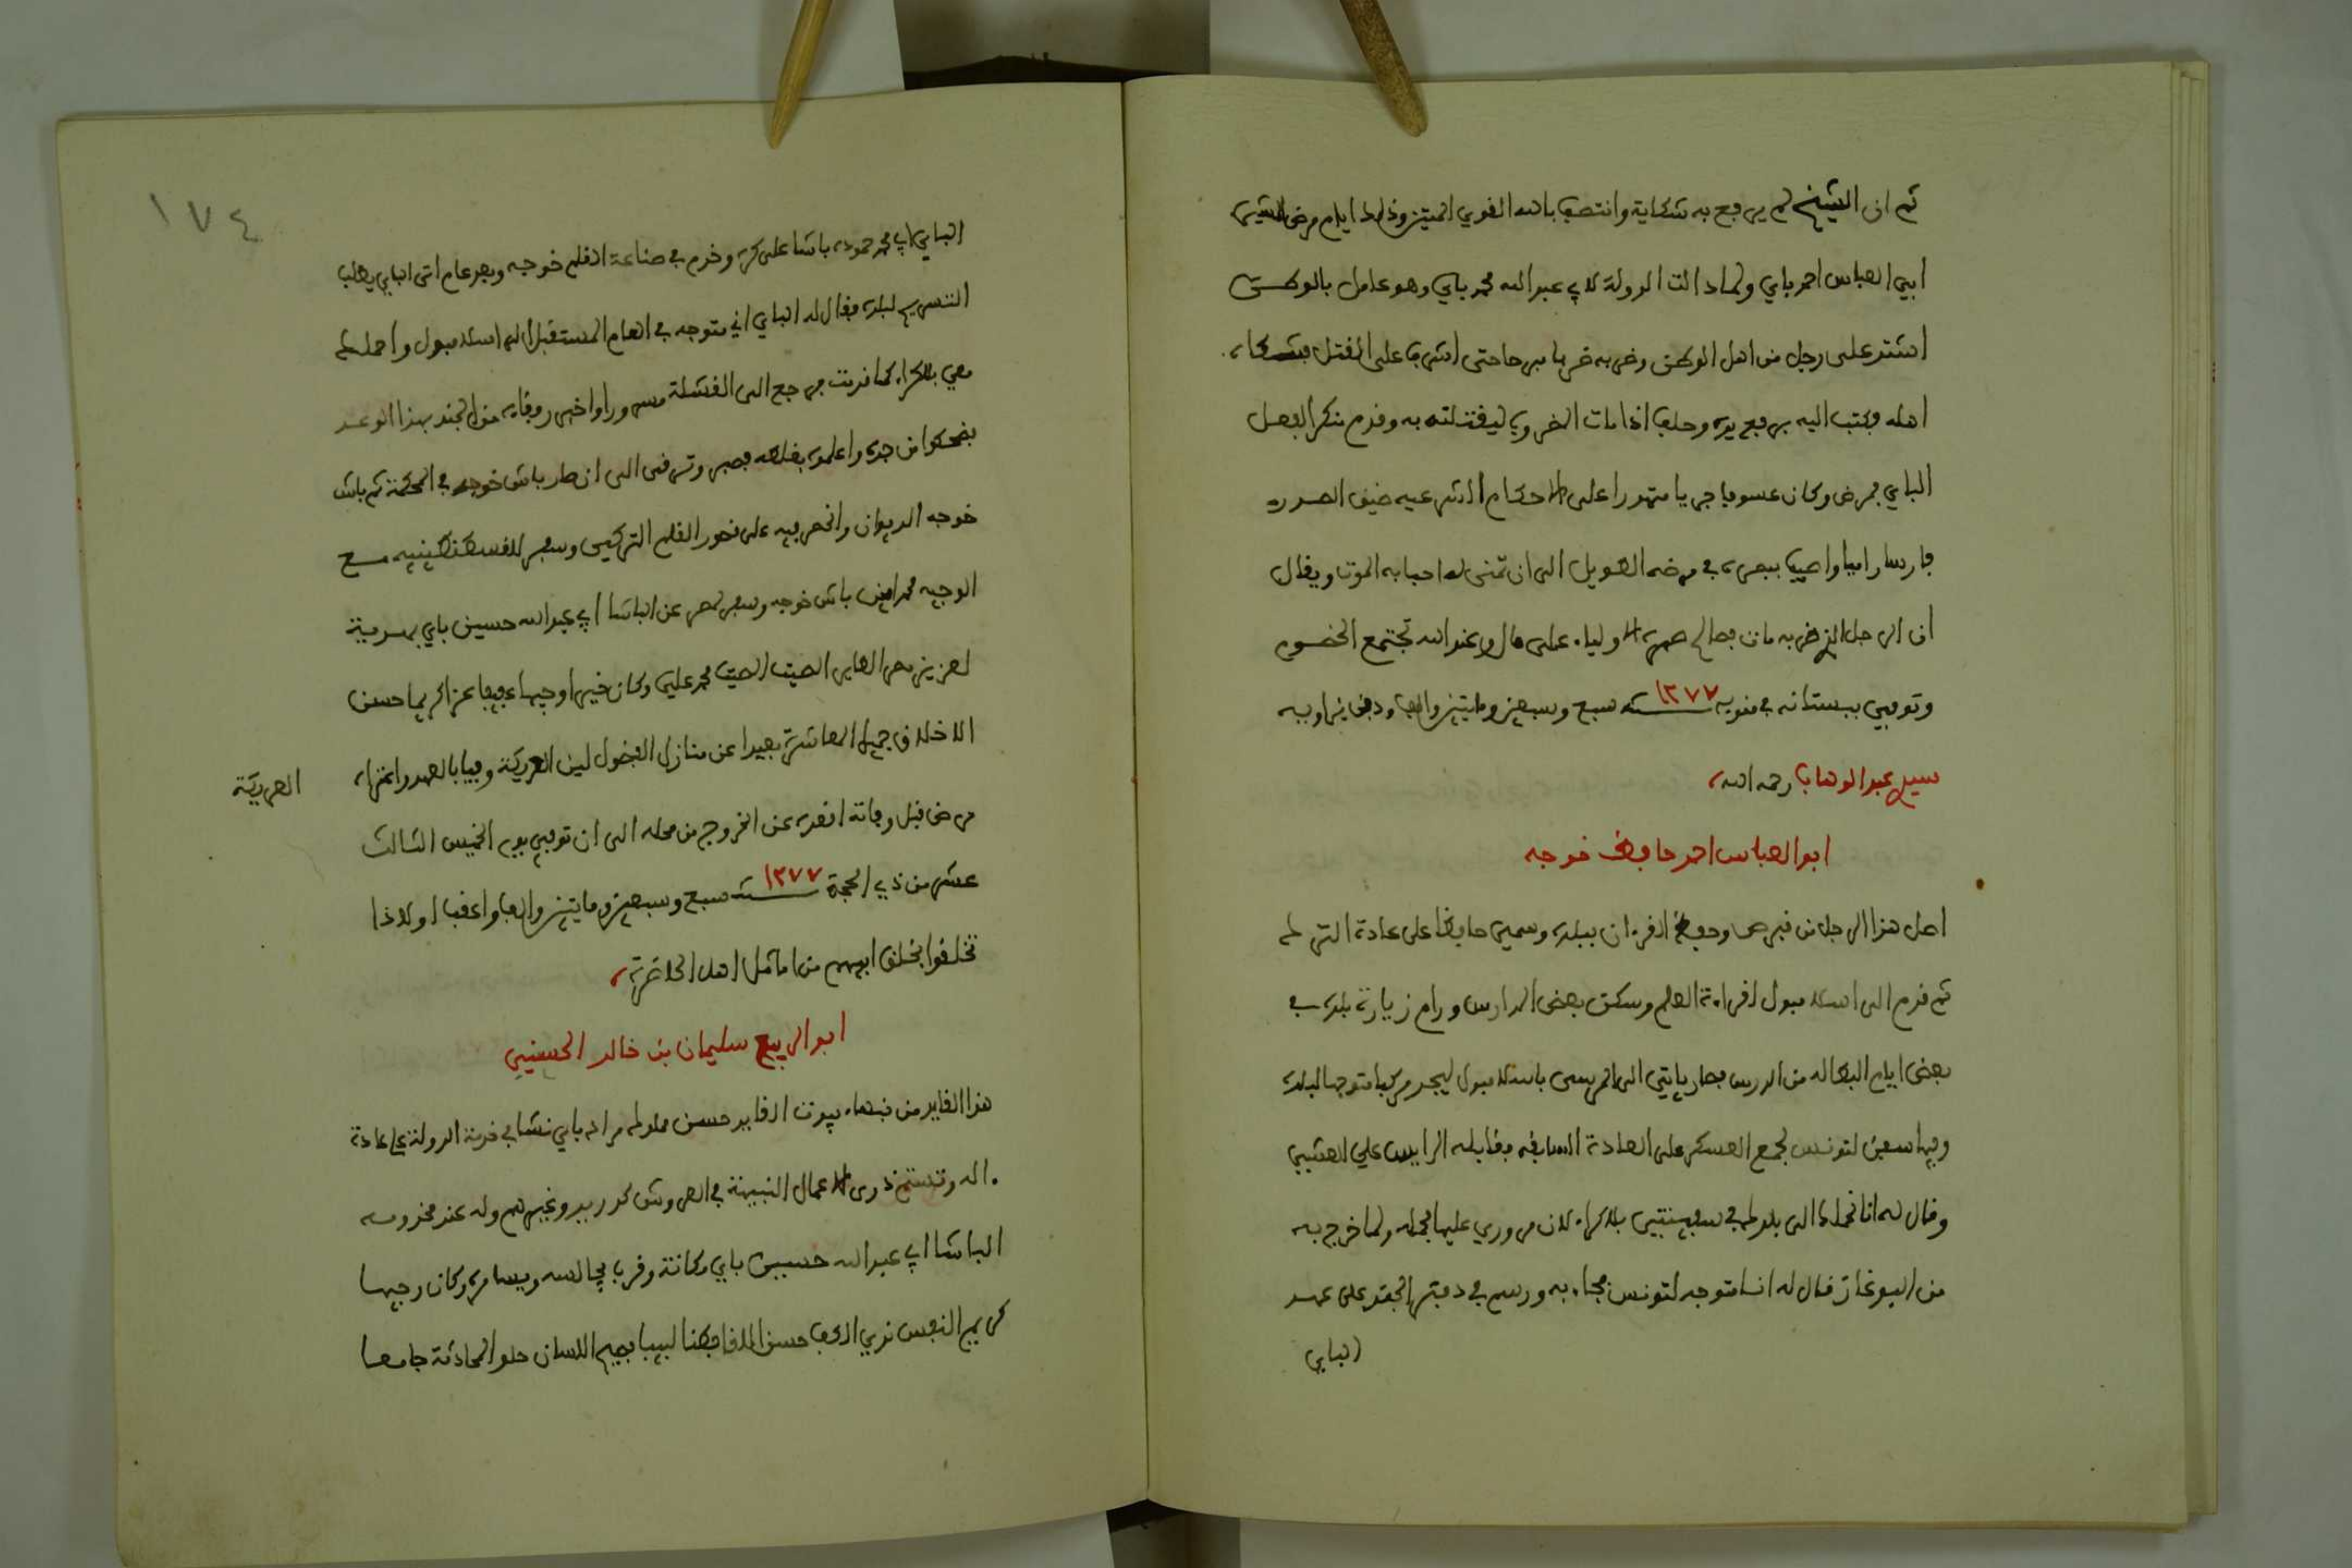 ثم ان الشيخ لم يرفع به شكاية وانتصف بالله القوي المتين وذلك ايام مرض المشير
ابي العباس احمد باي ولما دالت الدولة لابي عبد الله محمد باي وهو عامل بالوطن
اشتد على رجل من اهل الوطن وضربه ضربا مبرحا حتى اشرف على القتل فشكاه
اهله فكتب اليه برفع يده وحلف اذا مات المضروب ليقتلنه به وقدم منكر الفعل
الباي فمرض وكان عسوفا جريا متهورا على الاحكام الشرعيه ضيق الصدر
واصيب ببصره في مرضه الطويل الى ان تمنى له احبابه الموت ويقال
ان الرجل الذي ضربه مات فصالح صهره الاولياء على مال وعند الله تجتمع الخصوم
وتوفي ببستانه في منوبه سنة ١٢٧٧ سبع وسبعين ومايتين والف ودفن بزاوية
سيدي عبد الوهاب رحمه الله
ابو العباس احمد حافظ خوجه
اصل هذا الرجل من قبرص وحفظ القرءان ببلده وسمي حافظا على عادة الترك
ثم قدم الى اسلامبول لقراءة العلم وسكن بعض المدارس ورام زيارة بلده في
بعض ايام البطاله من الدرس فصار ياتي الى المرسى باسلامبول ليجد مركبا متوجها لبلده
وبها سفن لتونس لجمع العسكر على العادة السابقه فقابله الرايس علي العشيبي
وقال له انا نحملك الى بلدك في سفينتي بلا كراء لان مروري عليها فحمله ولما خرج به
من البوغاز قال له انا متوجه لتونس فجاء به ورسم في دفتر الجند على عهد
الباي
١٧٤
الباي ابي محمد حموده باشا على كره وخدم في صناعة القلم خوجه وبعد عام اتى الباي يطلب
التسريح لبلده فقال له الباي اني متوجه في العام المستقبل الى اسلامبول واحملك
معي بلا كراء كما قدمت فرجع الى القشلة مسرورا واخبر رفقاءه من الجند بهذا الوعد
فضحكوا من جده واعلموه بغلطه فصبر وترقى الى ان صار باش خوجه في المحكمة ثم باش
خوجه الديوان وانحصر فيه على نحور القلم التركي وسافر للقسطنطينيه مع
الوجيه محمد امين باش خوجه وسافر لمصر عن الباشا ابي عبد الله حسين باي بهدية
لعزيز مصر الطاير الصيت محمد علي وكان خيرا وجيها عفيفا عزا كريما حسن
الاخلاق جميل المعاشرة بعيدا عن منازل الفضول لين العريكة وفيا بالعهد واعتراه
العريكة
مرض قبل وفاته اقعده عن الخروج من محله الى ان توفي يوم الخميس الثالث
عشر من ذي الحجة سنة ١٢٧٧ سبع وسبعين ومايتين والف واعقب اولادا
تخلقوا بخلق ابيهم من اماثل اهل الحاضرة
ابو الربيع سليمان بن خالد الحسيني
هذا القايد من نبهاء بيوت القايد حسن مملوك مراد باي نشا في خدمة الدولة على عادة
اله وتسنم ذرى الاعمال النبيهة في العروش كدريد وغيرهم وله عند مخدومه
الباشا ابي عبد الله حسين باي مكانة وقرب يجالسه ويسامره وكان وجيها
كريم النفس ندي الكف حسن الملقا فطنا لبيبا فصيح اللسان حلو المحادثة جامعا